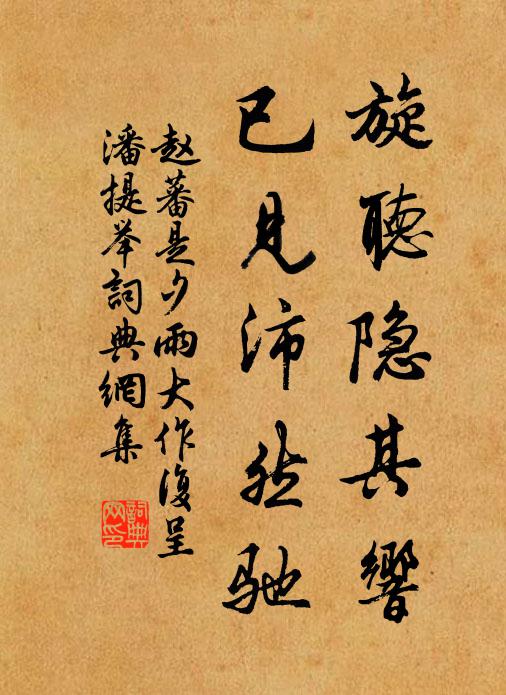 旋聽隐其響
已見沛然馳
赵蕃是夕雨大作復呈
潘提举詞典網集
詞典网印